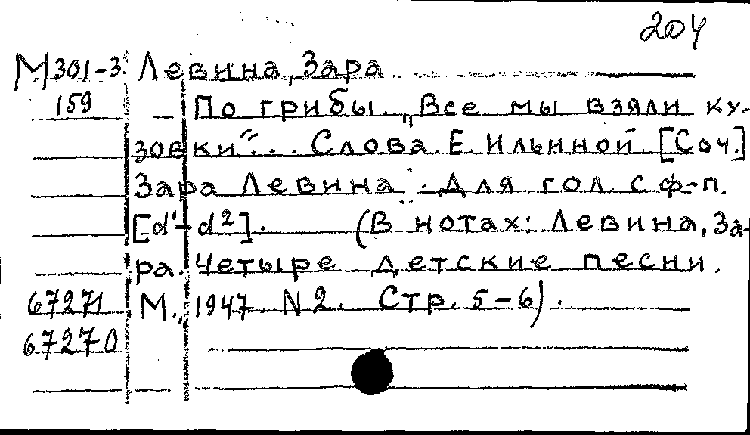 204
М301-3 Левина, Зара
159 По грибы. „Все мы взяли ку-
зовки“... Слова Е. Ильиной [Соч.]
Зара Левина. Для гол. с ф-п.
[d¹-d²]. (В нотах: Левина, За-
ра. Четыре детские песни.
67271 М., 1947. N2. Стр. 5-6).
67270